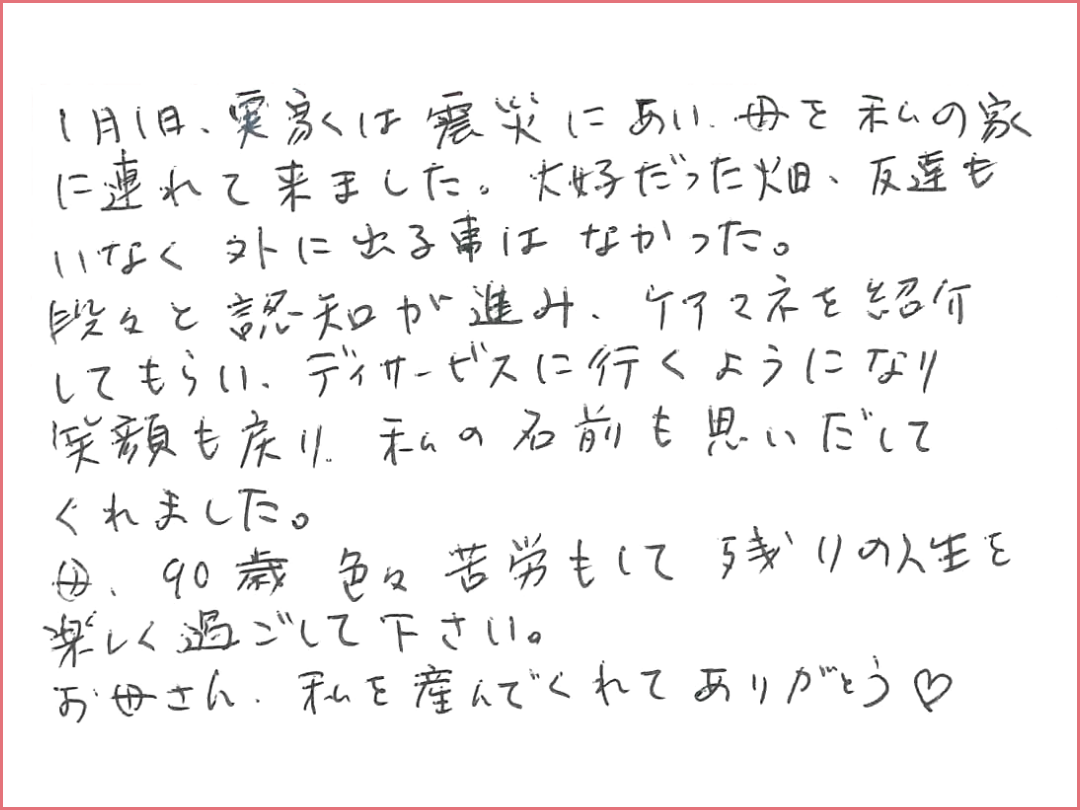 1月1日、実家は震災にあい、母を私の家
に連れて来ました。大好だった畑、友達も
いなく外に出る事はなかった。
段々と認知が進み、ケアマネを紹介
してもらい、デイサービスに行くようになり
笑顔も戻り、私の名前も思いだして
くれました。
母、90歳 色々苦労もして残りの人生を
楽しく過ごして下さい。
お母さん、私を産んでくれてありがとう♡